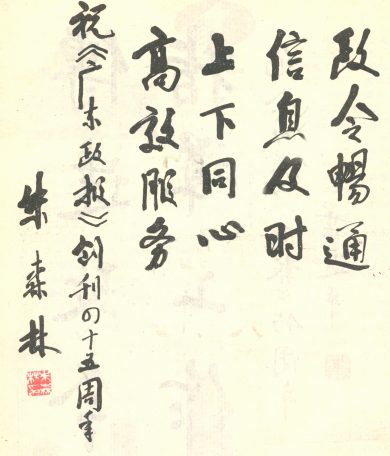 政令暢通
信息及时
上下同心
高效服务
祝《广东政报》创刊四十五周年
朱森林